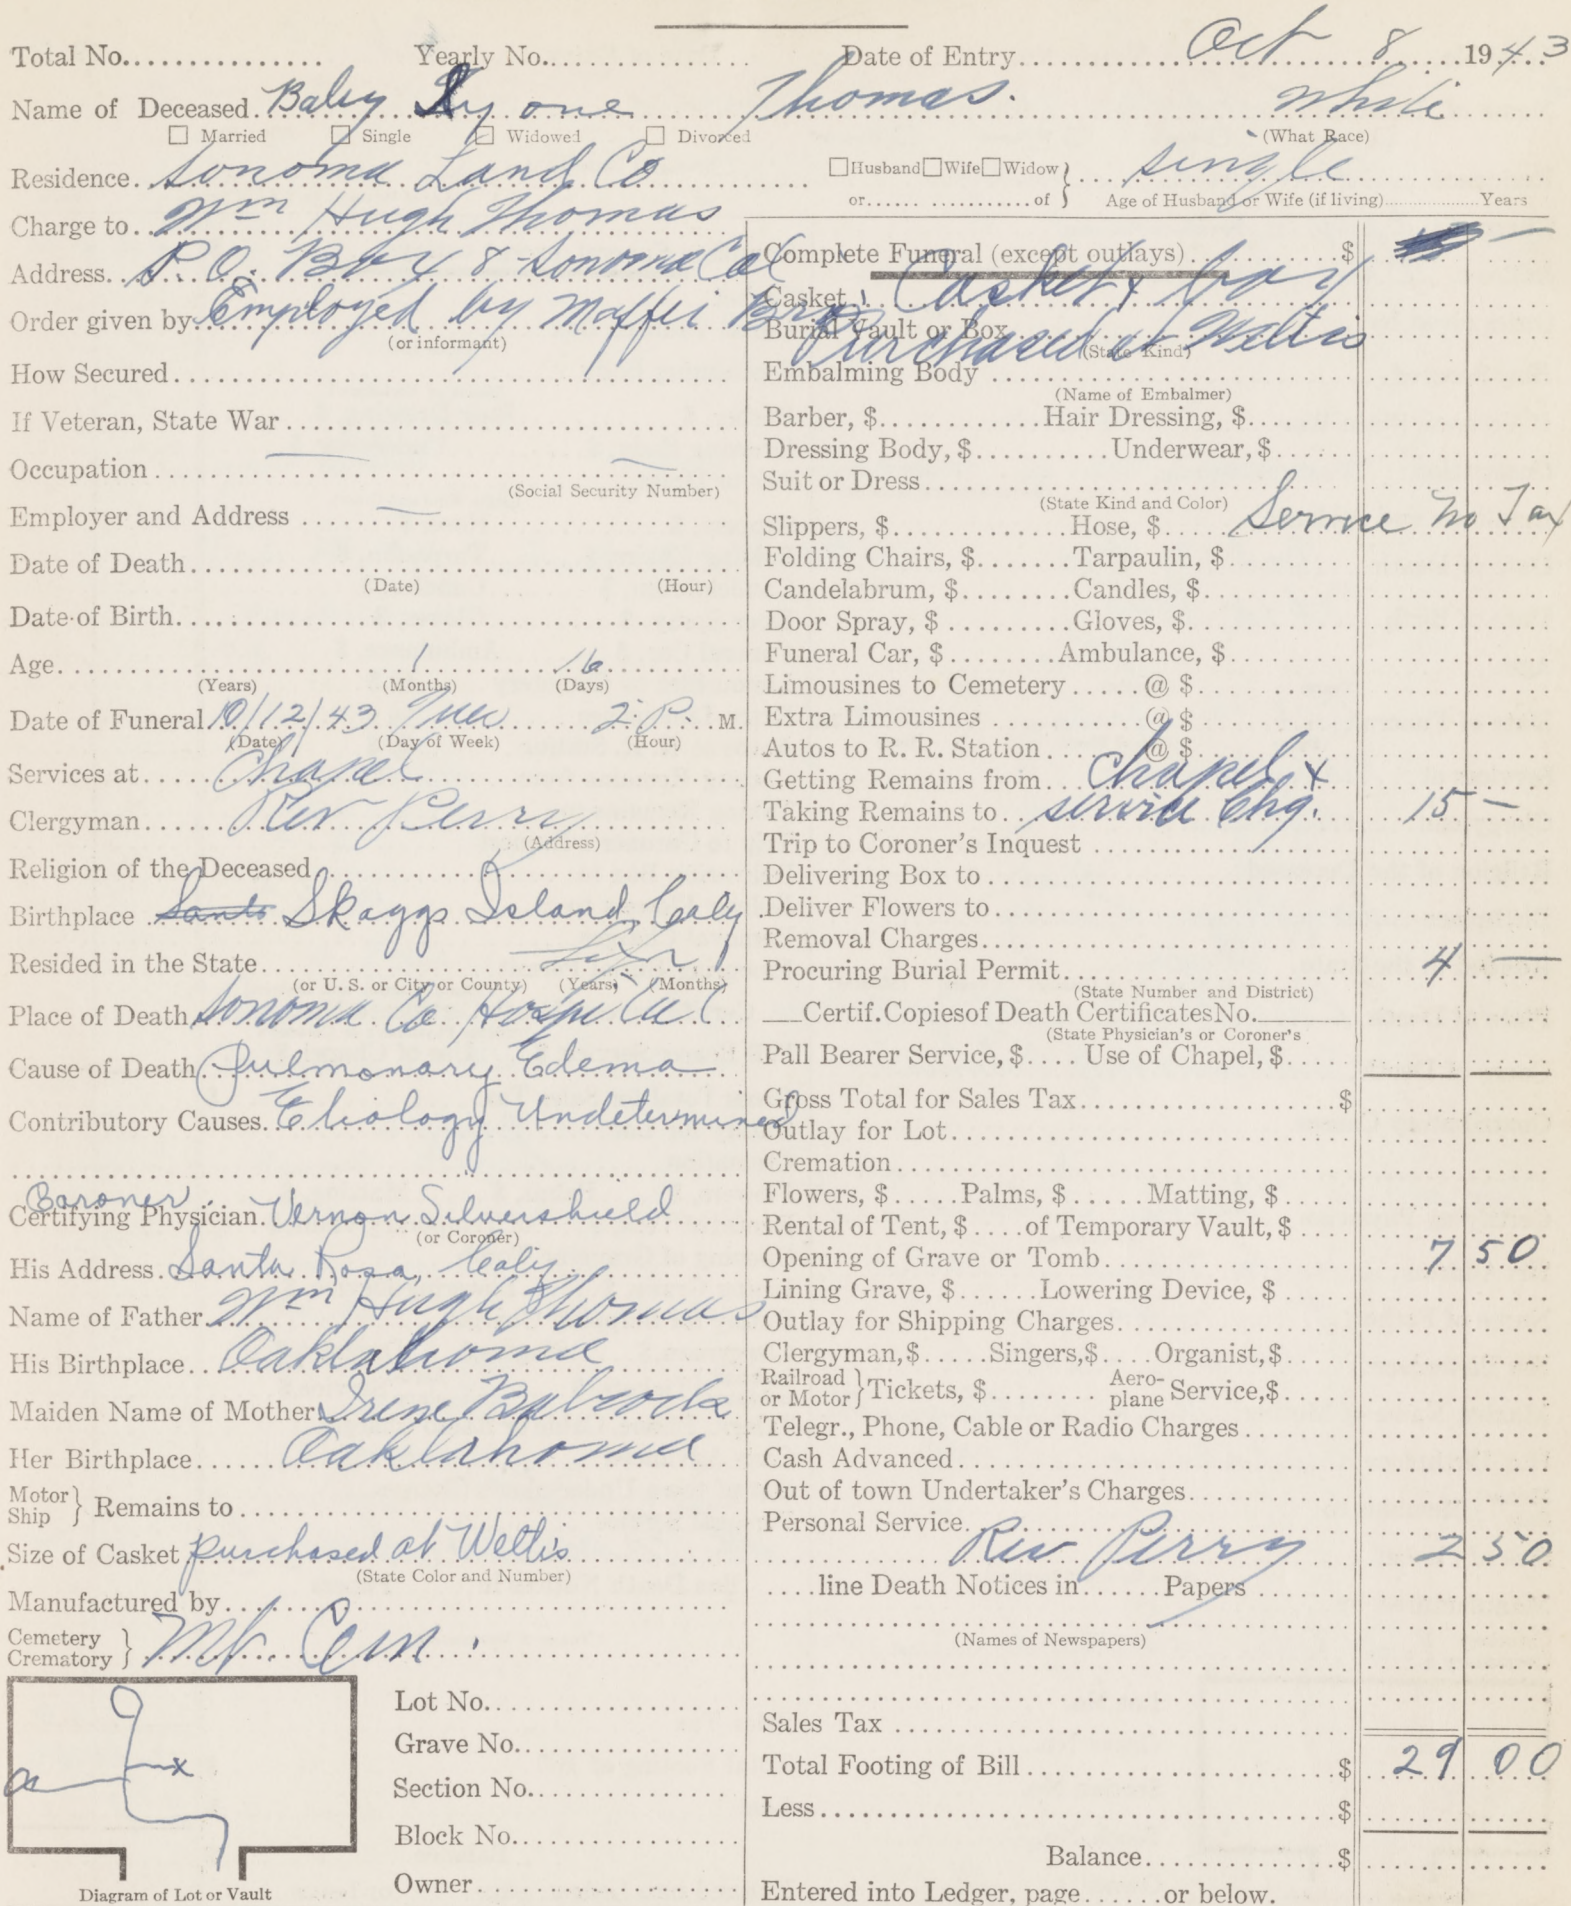 Total No. Yearly No. Date of Entry Oct 8 1943
Name of Deceased Baby one Thomas. White
Married Single Widowed Divorced (What Race)
Residence Sonoma Land Co Husband Wife Widow } single
or of Age of Husband or Wife (if living) Years
Charge to Wm Hugh Thomas
Address P.O. Box 8 - Sonoma Cal
Order given by Employed by Maffei Bro
(or informant)
How Secured
If Veteran, State War
Occupation
(Social Security Number)
Employer and Address
Date of Death
(Date) (Hour)
Date of Birth
Age 1 16
(Years) (Months) (Days)
Date of Funeral 10/12/43 Tues 2: P. M.
(Date) (Day of Week) (Hour)
Services at Chapel
Clergyman Rev Perry
(Address)
Religion of the Deceased
Birthplace Santa Skaggs Island Caly
Resided in the State Life
(or U. S. or City or County) (Years) (Months)
Place of Death Sonoma Co. Hospital
Cause of Death Pulmonary Edema
Contributory Causes Etiology Undetermined
Coroner
Certifying Physician Vernon Silvershield
(or Coroner)
His Address Santa Rosa, Caly
Name of Father Wm Hugh Thomas
His Birthplace Oaklahoma
Maiden Name of Mother Irene Babcock
Her Birthplace Oaklahoma
Motor Ship } Remains to
Size of Casket purchased at Weltis
(State Color and Number)
Manufactured by
Cemetery Crematory } Mt. Cem.
Lot No.
Grave No.
Section No.
Block No.
Owner
x
Diagram of Lot or Vault
Complete Funeral (except outlays) $ —
Casket Casket & box
Burial Vault or Box Purchased at Weltis
(State Kind)
Embalming Body
(Name of Embalmer)
Barber, $ Hair Dressing, $
Dressing Body, $ Underwear, $
Suit or Dress
(State Kind and Color)
Slippers, $ Hose, $ Service No Tax
Folding Chairs, $ Tarpaulin, $
Candelabrum, $ Candles, $
Door Spray, $ Gloves, $
Funeral Car, $ Ambulance, $
Limousines to Cemetery @ $
Extra Limousines @ $
Autos to R. R. Station @ $
Getting Remains from Chapel &
Taking Remains to service Chg. 15 —
Trip to Coroner's Inquest
Delivering Box to
Deliver Flowers to
Removal Charges
Procuring Burial Permit 4 —
(State Number and District)
Certif. Copies of Death Certificates No.
(State Physician's or Coroner's
Pall Bearer Service, $ Use of Chapel, $
Gross Total for Sales Tax $
Outlay for Lot
Cremation
Flowers, $ Palms, $ Matting, $
Rental of Tent, $ of Temporary Vault, $
Opening of Grave or Tomb 7 50
Lining Grave, $ Lowering Device, $
Outlay for Shipping Charges
Clergyman, $ Singers, $ Organist, $
Railroad or Motor } Tickets, $ Aeroplane Service, $
Telegr., Phone, Cable or Radio Charges
Cash Advanced
Out of town Undertaker's Charges
Personal Service
Rev Perry 2 50
line Death Notices in Papers
(Names of Newspapers)
Sales Tax
Total Footing of Bill $ 29 00
Less $
Balance $
Entered into Ledger, page or below.